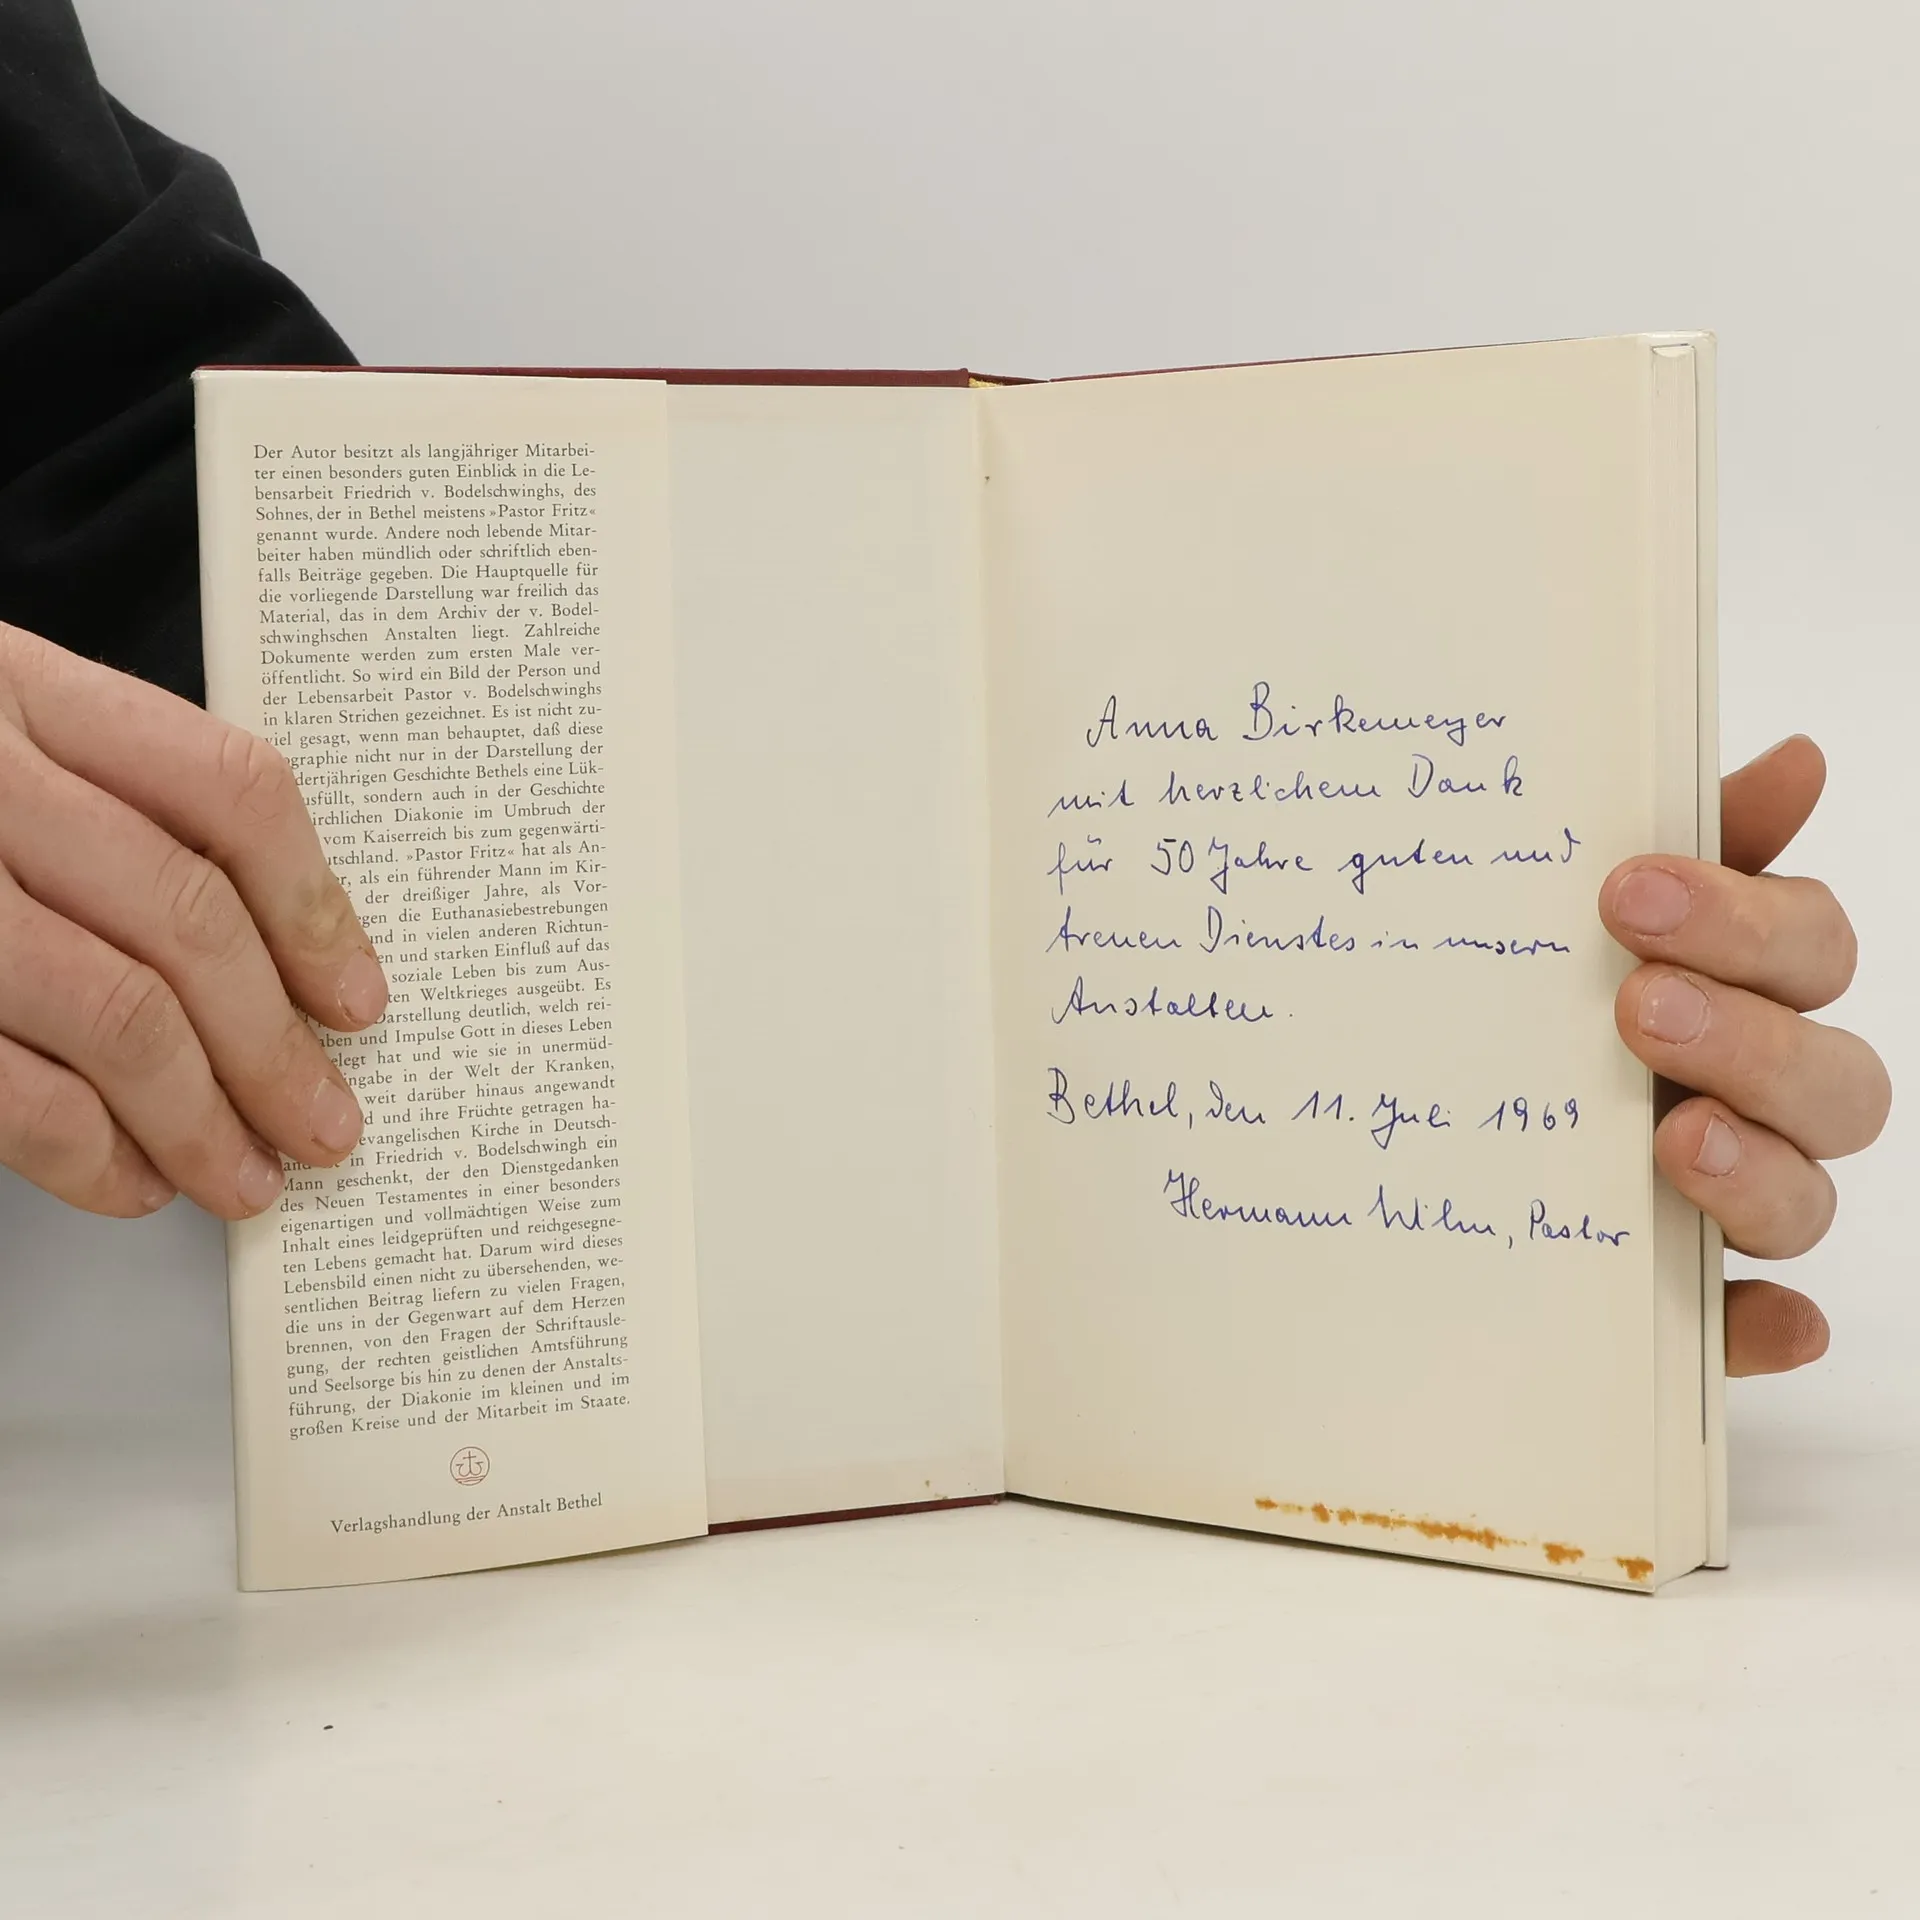 Der Autor besitzt als langjähriger Mitarbei-
ter einen besonders guten Einblick in die Le-
bensarbeit Friedrich v. Bodelschwinghs, des
Sohnes, der in Bethel meistens »Pastor Fritz«
genannt wurde. Andere noch lebende Mitar-
beiter haben mündlich oder schriftlich eben-
falls Beiträge gegeben. Die Hauptquelle für
die vorliegende Darstellung war freilich das
Material, das in dem Archiv der v. Bodel-
schwinghschen Anstalten liegt. Zahlreiche
Dokumente werden zum ersten Male ver-
öffentlicht. So wird ein Bild der Person und
der Lebensarbeit Pastor v. Bodelschwinghs
in klaren Strichen gezeichnet. Es ist nicht zu-
viel gesagt, wenn man behauptet, daß diese
ographie nicht nur in der Darstellung der
dertjährigen Geschichte Bethels eine Lük-
usfüllt, sondern auch in der Geschichte
irchlichen Diakonie im Umbruch der
vom Kaiserreich bis zum gegenwärti-
utschland. »Pastor Fritz« hat als An-
r, als ein führender Mann im Kir-
der dreißiger Jahre, als Vor-
gen die Euthanasiebestrebungen
und in vielen anderen Richtun-
en und starken Einfluß auf das
soziale Leben bis zum Aus-
ten Weltkrieges ausgeübt. Es
Darstellung deutlich, welch rei-
aben und Impulse Gott in dieses Leben
elegt hat und wie sie in unermüd-
ingabe in der Welt der Kranken,
weit darüber hinaus angewandt
d und ihre Früchte getragen ha-
evangelischen Kirche in Deutsch-
in Friedrich v. Bodelschwingh ein
Mann geschenkt, der den Dienstgedanken
des Neuen Testamentes in einer besonders
eigenartigen und vollmächtigen Weise zum
Inhalt eines leidgeprüften und reichgesegne-
ten Lebens gemacht hat. Darum wird dieses
Lebensbild einen nicht zu übersehenden, we-
sentlichen Beitrag liefern zu vielen Fragen,
die uns in der Gegenwart auf dem Herzen
brennen, von den Fragen der Schriftausle-
gung, der rechten geistlichen Amtsführung
und Seelsorge bis hin zu denen der Anstalts-
führung, der Diakonie im kleinen und im
großen Kreise und der Mitarbeit im Staate.
Verlagshandlung der Anstalt Bethel
Anna Birkemeyer
mit herzlichem Dank
für 50 Jahre guten und
treuen Dienstes in unsern
Anstalten.
Bethel, den 11. Juli 1969
Hermann Wilm, Pastor